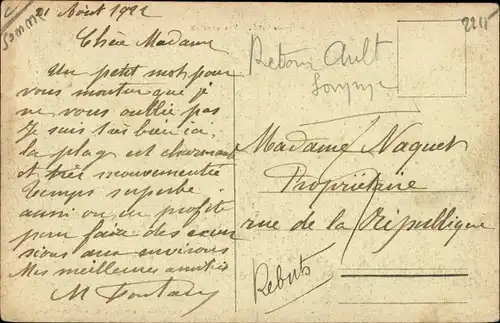 21 Août 1922
Somme
Chère Madame
Un petit mot pour
vous montrer que je
ne vous oublie pas
Je suis très bien ici,
la plage est charmante
et très mouvementée
Temps superbe
aussi on en profite
pour faire des excur
sions aux environs
Mes meilleures amitiés
M
2215
Retour Ault
Somme
Madame Naquet
Propriétaire
rue de la République
Rebuts